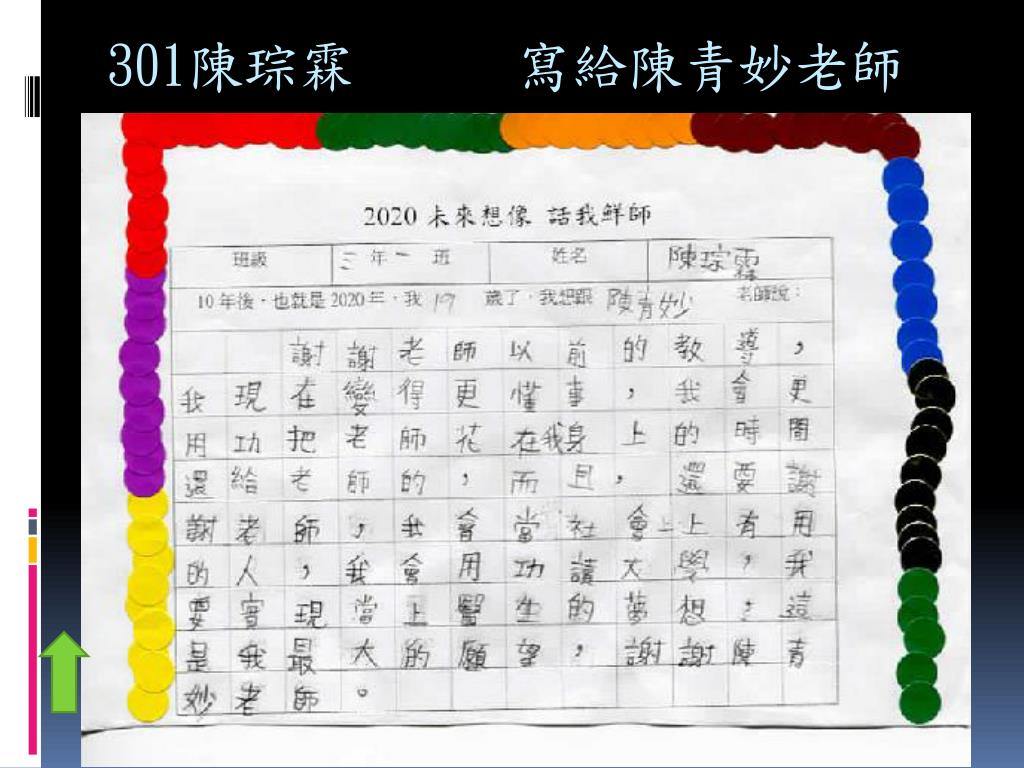 301陳琮霖 寫給陳青妙老師
2020 未來想像 話我鮮師
班級 三年一班 姓名 陳琮霖
10年後，也就是2020年，我19歲了，我想跟陳青妙老師說：
謝謝老師以前的教導，
我現在變得更懂事，我會更
用功把老師花在我身上的時間
還給老師的，而且，還要謝
謝老師，我會當社會上有用
的人，我會用功讀大學，我
要實現當上醫生的夢想，這
是我最大的願望，謝謝陳青
妙老師。